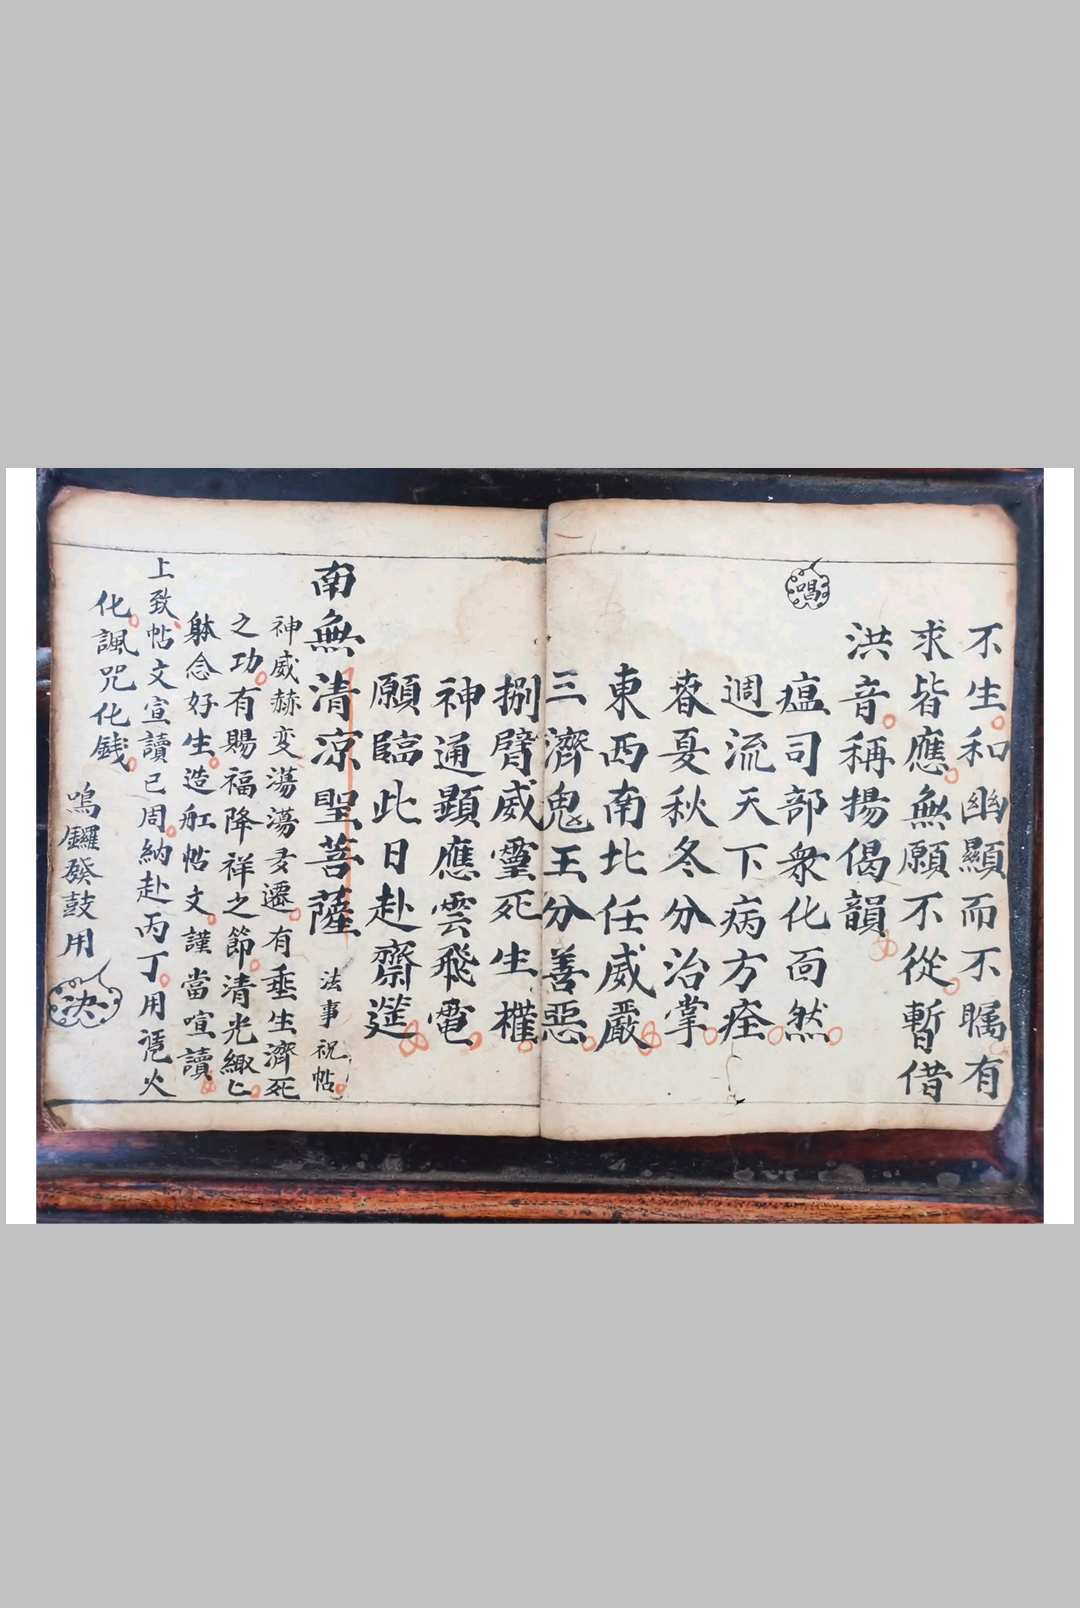 不生和幽顯而不矚有
求皆應無願不從暫借
洪音稱揚偈韻
唱
瘟司部衆化面然
週流天下病方痊
春夏秋冬分治掌
東西南北任威嚴
三濟鬼王分善惡
捌臂威靈死生權
神通顯應雲飛電
願臨此日赴齋筵
南無清凉聖菩薩
法事祝帖
神威赫变蕩蕩友遷有垂生濟死
之功有賜福降祥之節清光緻匕
躰念好生造舡帖文謹當喧讀
上致帖文宣讀已周納赴丙丁用凴火
化諷咒化錢
鳴鑼發鼓用
决